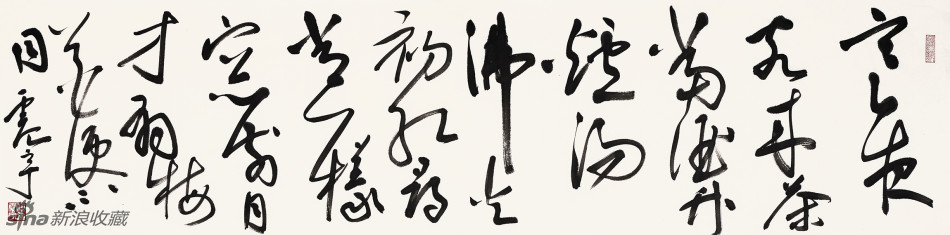 寒夜
客來茶
當酒竹
爐湯
沸火
初紅尋
常一樣
窗前月
才有梅
花便不
同
sina新浪收藏